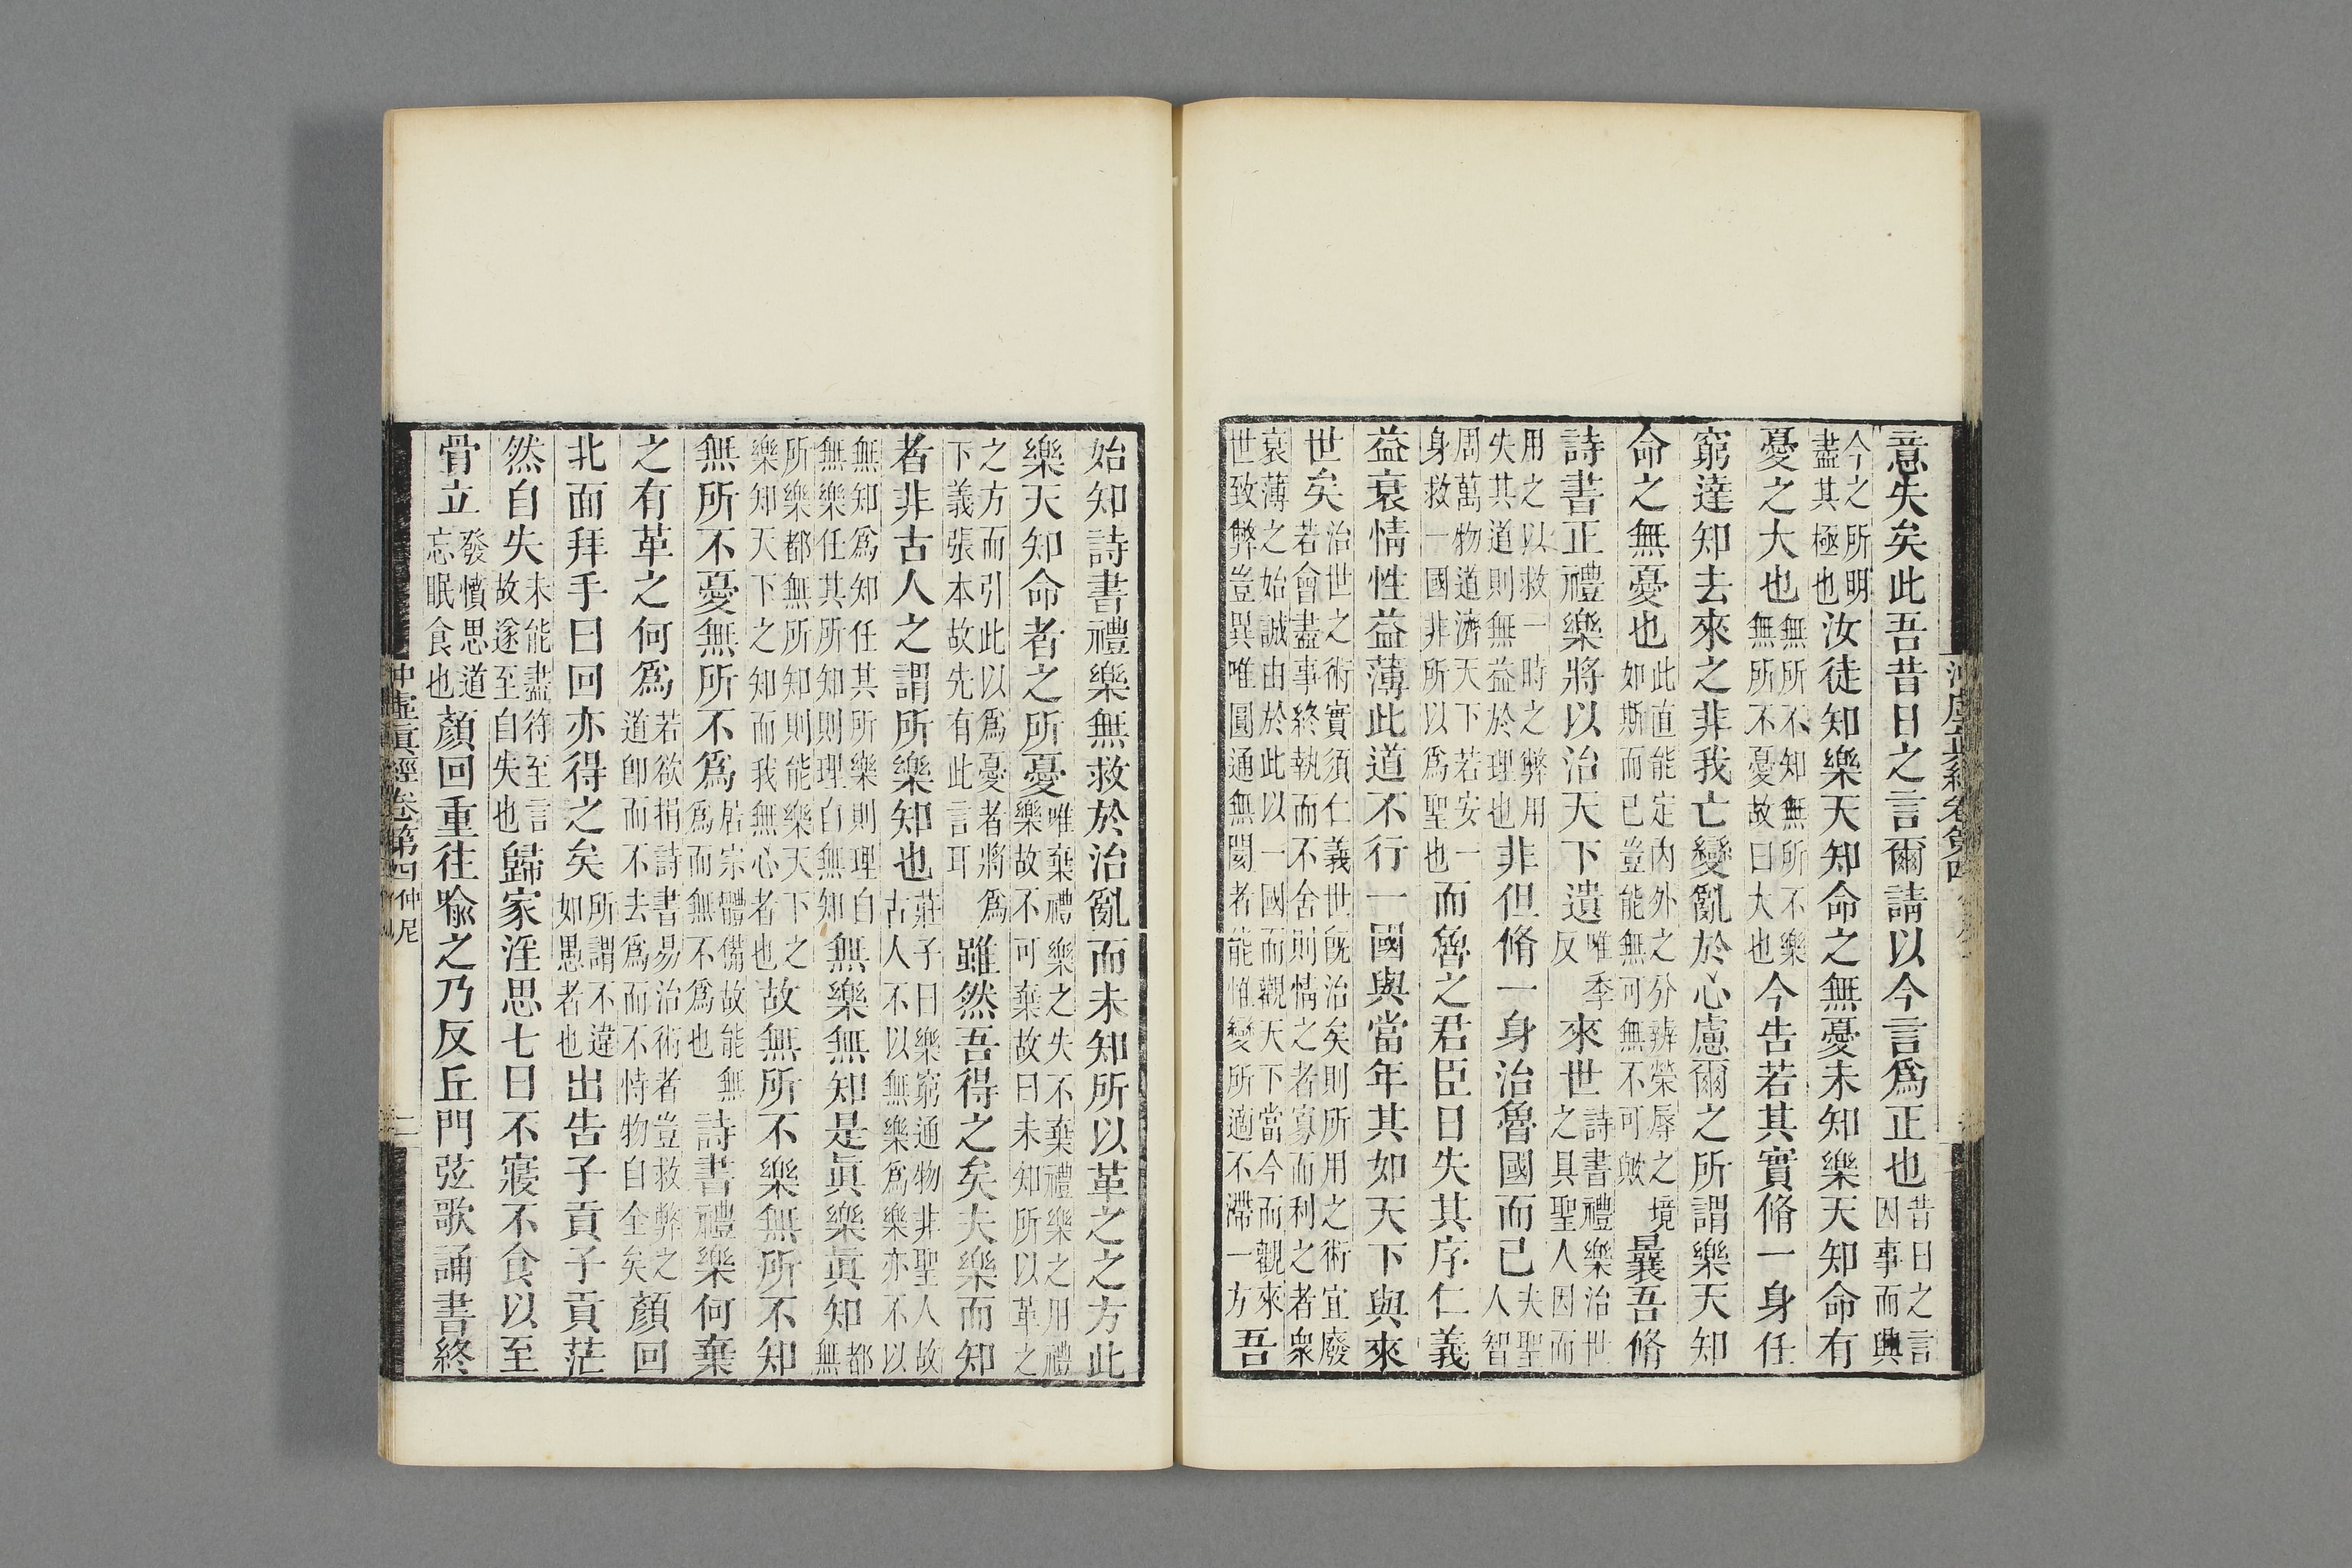 意失矣此吾昔日之言爾請以今言爲正也昔日之言因事而興
今之所明盡其極也汝徒知樂天知命之無憂未知樂天知命有
憂之大也無所不知無所不樂無所不憂故曰大也今告若其實脩一身任
窮達知去來之非我亡變亂於心慮爾之所謂樂天知
命之無憂也此直能定內外之分辨榮辱之境如斯而已豈能無可無不可歟曩吾脩
詩書正禮樂將以治天下遺唯季反來世詩書禮樂治世之具聖人因而
用之以救一時之弊用失其道則無益於理也非但脩一身治魯國而已夫聖人智
周萬物道濟天下若安一身救一國非所以爲聖也而魯之君臣日失其序仁義
益衰情性益薄此道不行一國與當年其如天下與來
世矣治世之術實須仁義世旣治矣則所用之術宜廢若會盡事終執而不舍則情之者寡而利之者衆
衰薄之始誠由於此以一國而觀天下當今而觀來世致弊豈異唯圓通無閡者能惟變所適不滯一方吾
始知詩書禮樂無救於治亂而未知所以革之之方此
樂天知命者之所憂唯棄禮樂之失不棄禮樂之用禮樂故不可棄故曰未知所以革之
之方而引此以爲憂者將爲下義張本故先有此言耳雖然吾得之矣夫樂而知
者非古人之謂所樂知也莊子曰樂窮通物非聖人故古人不以無樂爲樂亦不以
無知爲知任其所樂則理自無樂任其所知則理自無知無樂無知是眞樂眞知都無
所樂都無所知則能樂天下之樂知天下之知而我無心者也故無所不樂無所不知
無所不憂無所不爲居宗體備故能無爲而無不爲也詩書禮樂何棄
之有革之何爲若欲捐詩書易治術者豈救弊之道卽而不去爲而不恃物自全矣顏回
北面拜手曰回亦得之矣所謂不違如愚者也出告子貢子貢茫
然自失未能盡符至言故遂至自失也歸家淫思七日不寢不食以至
骨立發憤思道忘眠食也顏回重往喻之乃反丘門弦歌誦書終
沖虛眞經卷第四 仲尼 二